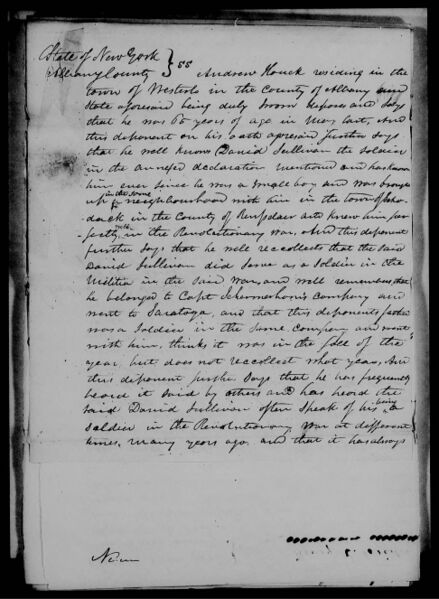 State of New York
Albany County } SS Andrew Houck residing in the
town of Westerlo in the County of Albany and
State aforesaid being duly sworn deposes and says
that he was 65 years of age in May last, And
this deponent on his oath aforesaid further says
that he well knows David Sullivan the soldier
in the annexed declaration mentioned and has known
him ever since he was a small boy and was brought
up in the same neighbourhood with him in the town of Scho-
dack in the County of Rensselaer and knew him per-
fectly in the Revolutionary War, And this deponent
further says that he well recollects that the said
David Sullivan did serve as a Soldier in the
Militia in the said War, and well remembers that
he belonged to Capt Schermerhorn's company and
went to Saratoga, and that this deponents father
was a Soldier in the same Company and went
with him, thinks it was in the fall of the
year, but does not recollect what year, And
this deponent further says that he has frequently
heard it said by others and has heard the
said David Sullivan often speak of his being a
Soldier in the Revolutionary War at different
times, many years ago, and that it has always